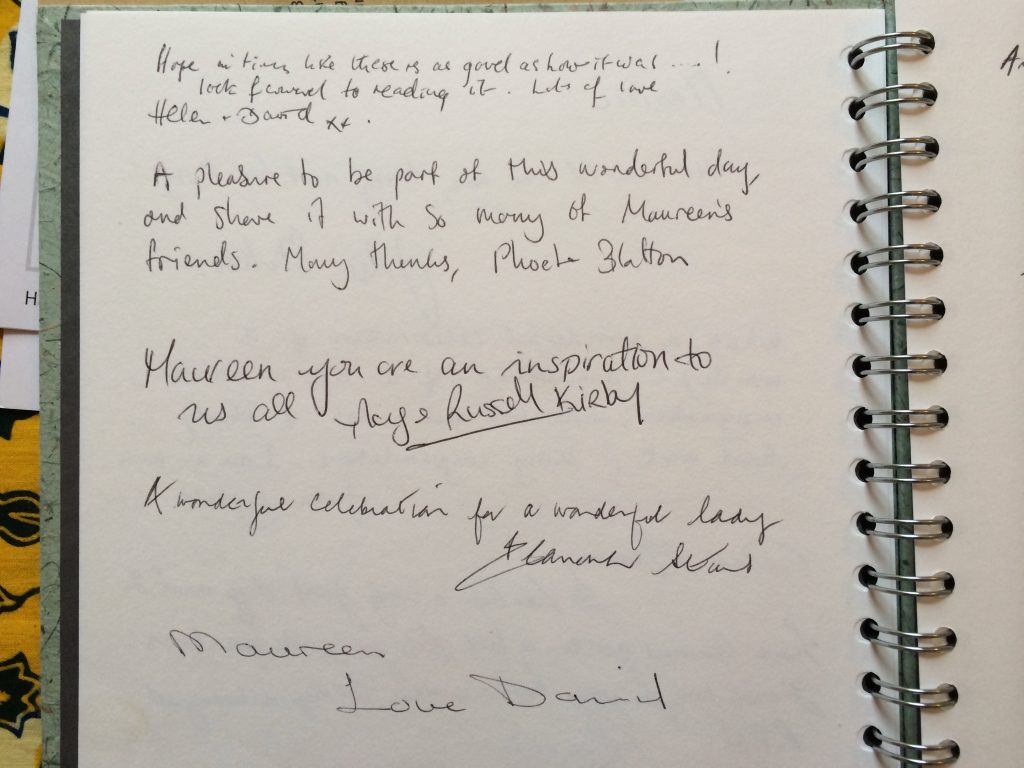 Hope in times like these is as good as how it was ..... !
look forward to reading it. Lots of love
Helen + David xx.
A pleasure to be part of this wonderful day,
and share it with so many of Maureen's
friends. Many thanks, Phoebe Blatton
Maureen you are an inspiration to
us all Russell Kirby
A wonderful celebration for a wonderful lady
Maureen
Love David
H